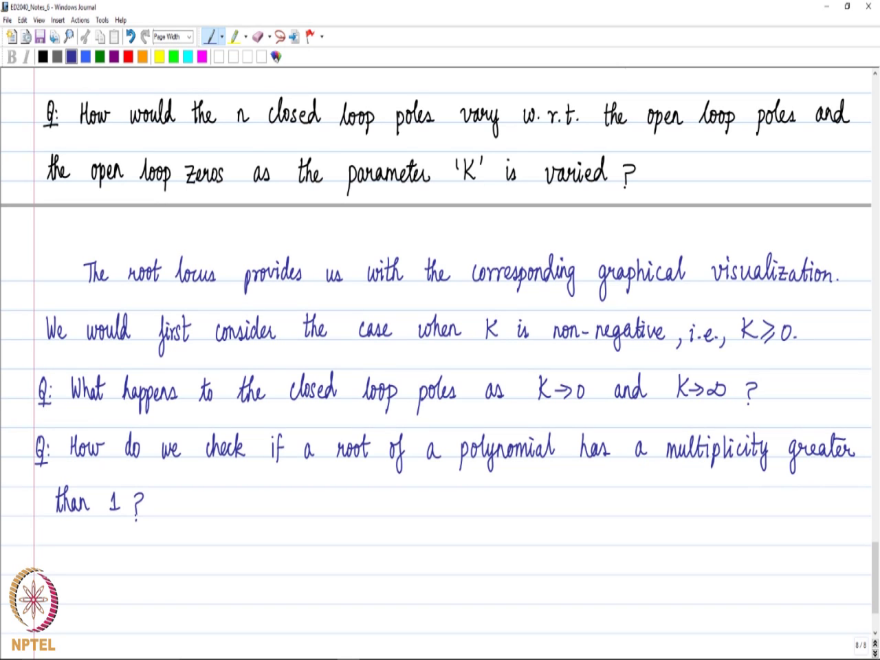 ED2040_Notes_6 - Windows Journal
File Edit View Insert Actions Tools Help
Page Width
B I
Q: How would the n closed loop poles vary w.r.t. the open loop poles and
the open loop zeros as the parameter 'K' is varied?
The root locus provides us with the corresponding graphical visualization.
We would first consider the case when K is non-negative, i.e., K≥0.
Q: What happens to the closed loop poles as K→0 and K→∞ ?
Q: How do we check if a root of a polynomial has a multiplicity greater
than 1?
NPTEL
8/8